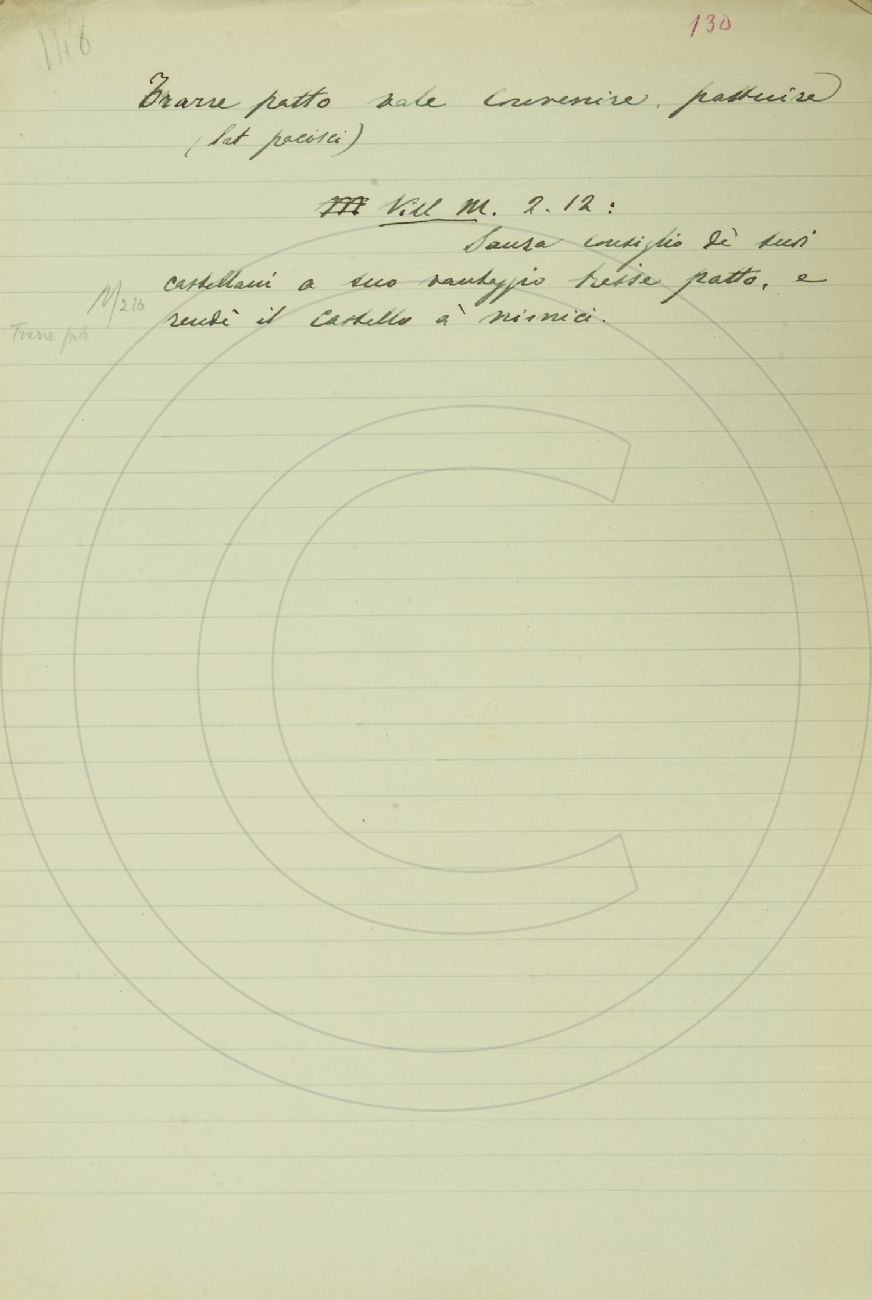 130
118
Trarre patto vale convenire, pattuire
(lat pacisci)
M Vill M. 2. 12:
Sanza consiglio dè suoi
castellani a suo vantaggio tresse patto, e
M/216
rendè il castello a' nimici.
Trarre patto